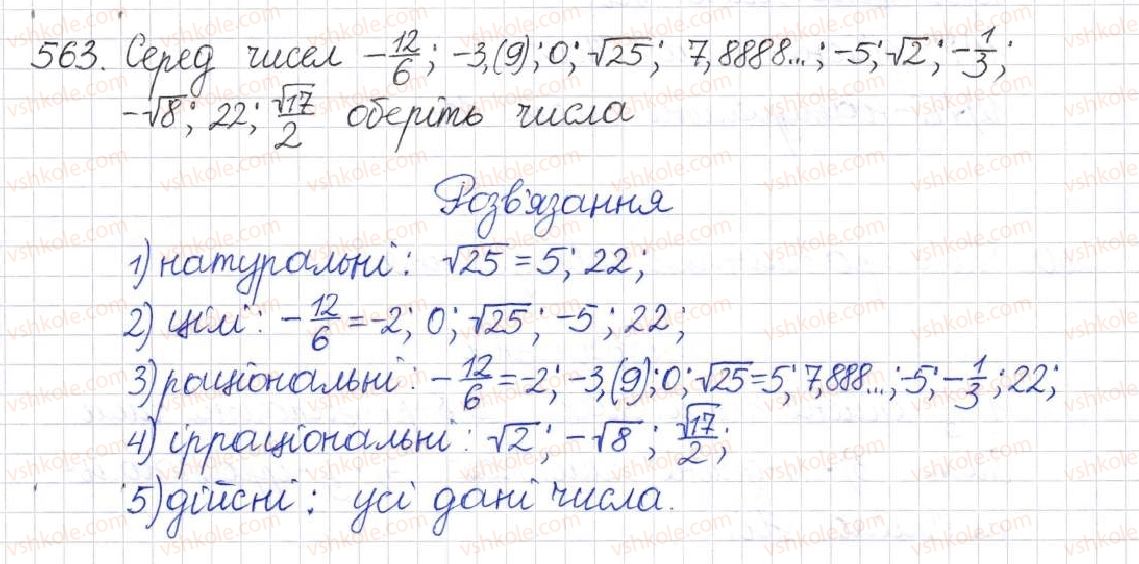 563. Серед чисел -12/6; -3,(9); 0; √25; 7,8888...; -5; √2; -1/3;
-√8; 22; √17/2 оберіть числа
Розв'язання
1) натуральні: √25 = 5; 22;
2) цілі: -12/6 = -2; 0; √25; -5; 22;
3) раціональні: -12/6 = -2; -3,(9); 0; √25 = 5; 7,888...; -5; -1/3; 22;
4) ірраціональні: √2; -√8; √17/2;
5) дійсні: усі дані числа.
vshkole.com